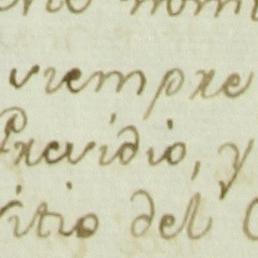 siempre
Presidio, y
sitio del